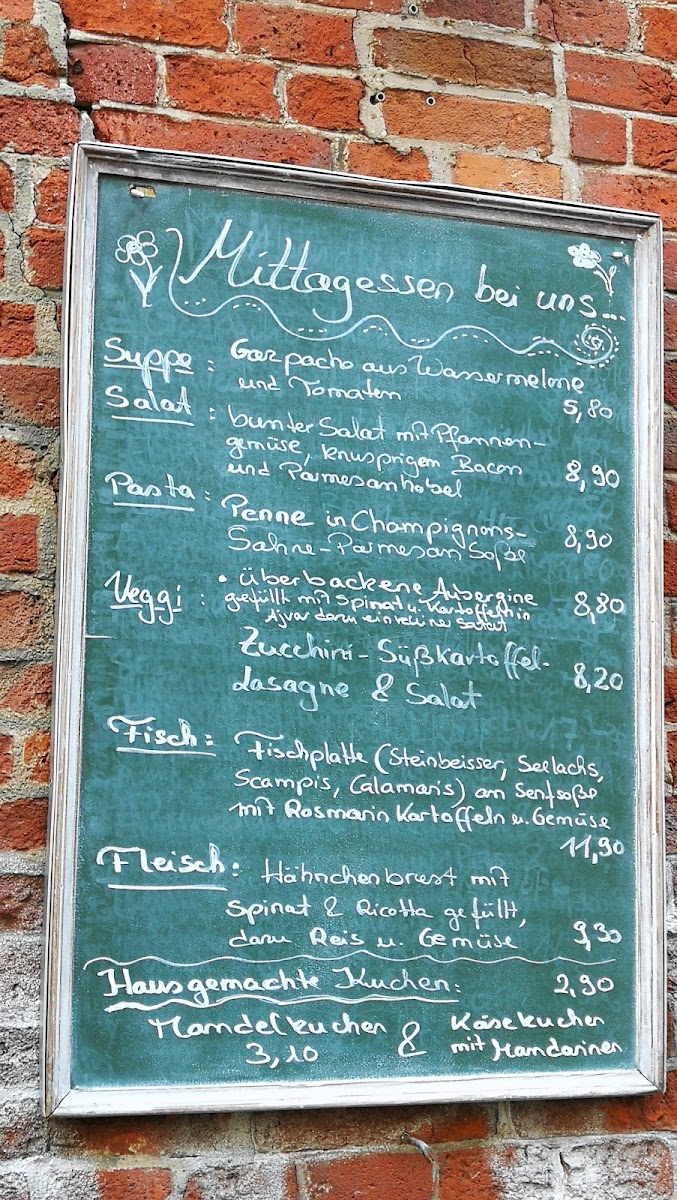 Mittagessen bei uns...
Suppe : Gazpacho aus Wassermelone
und Tomaten 5,80
Salat : bunter Salat mit Pfannen-
gemüse, knusprigem Bacon
und Parmesanhobel 8,90
Pasta : Penne in Champignons-
Sahne-Parmesan Soße 8,90
Veggi : • überbackene Aubergine
gefüllt mit Spinat u. Kartoffeln in 8,80
Ajvar dazu ein kleiner Salat
Zucchini-Süßkartoffel-
Lasagne & Salat 8,20
Fisch: Fischplatte (Steinbeisser, Seelachs,
Scampis, Calamaris) an Senfsoße
mit Rosmarin Kartoffeln u. Gemüse
11,90
Fleisch: Hähnchenbrust mit
Spinat & Ricotta gefüllt,
dazu Reis u. Gemüse 9,30
Hausgemachte Kuchen: 2,90
Mandelkuchen & Käsekuchen
3,10 mit Mandarinen